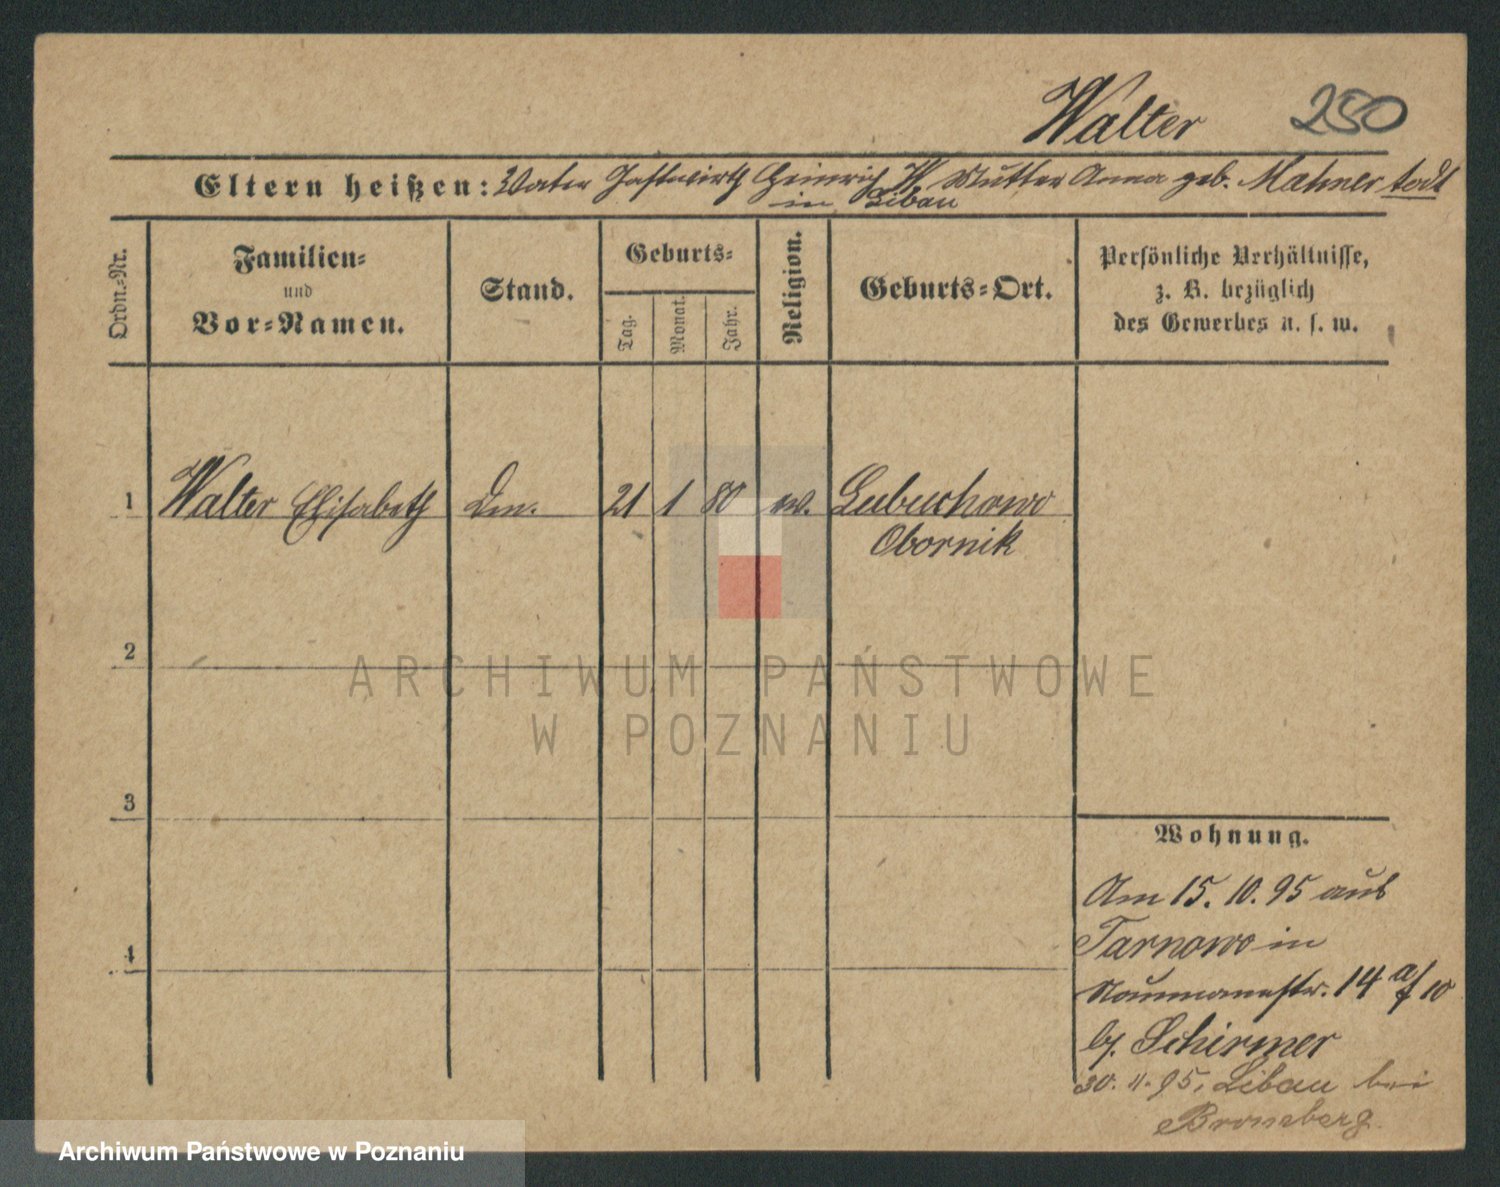 Walter 250
Eltern heißen: Vater Gastwirth Heinrich W. Mutter Anna geb. Mahner todt
in Libau
Ordn.-Nr.
Familien-
und
Vor-Namen.
Stand.
Geburts-
Tag.
Monat.
Jahr.
Religion.
Geburts-Ort.
Persönliche Verhältnisse,
z. B. bezüglich
des Gewerbes u. s. w.
1 Walter Elisabeth 21 1 80 ev.
Obornik
2
3
4
Wohnung.
Am 15. 10. 95 aus
Tarnowo in
Naumannstr. 14 10
b. Schirmer
30. 11. 95, Libau bei
Bromberg
ARCHIWUM PAŃSTWOWE
W POZNANIU
Archiwum Państwowe w Poznaniu